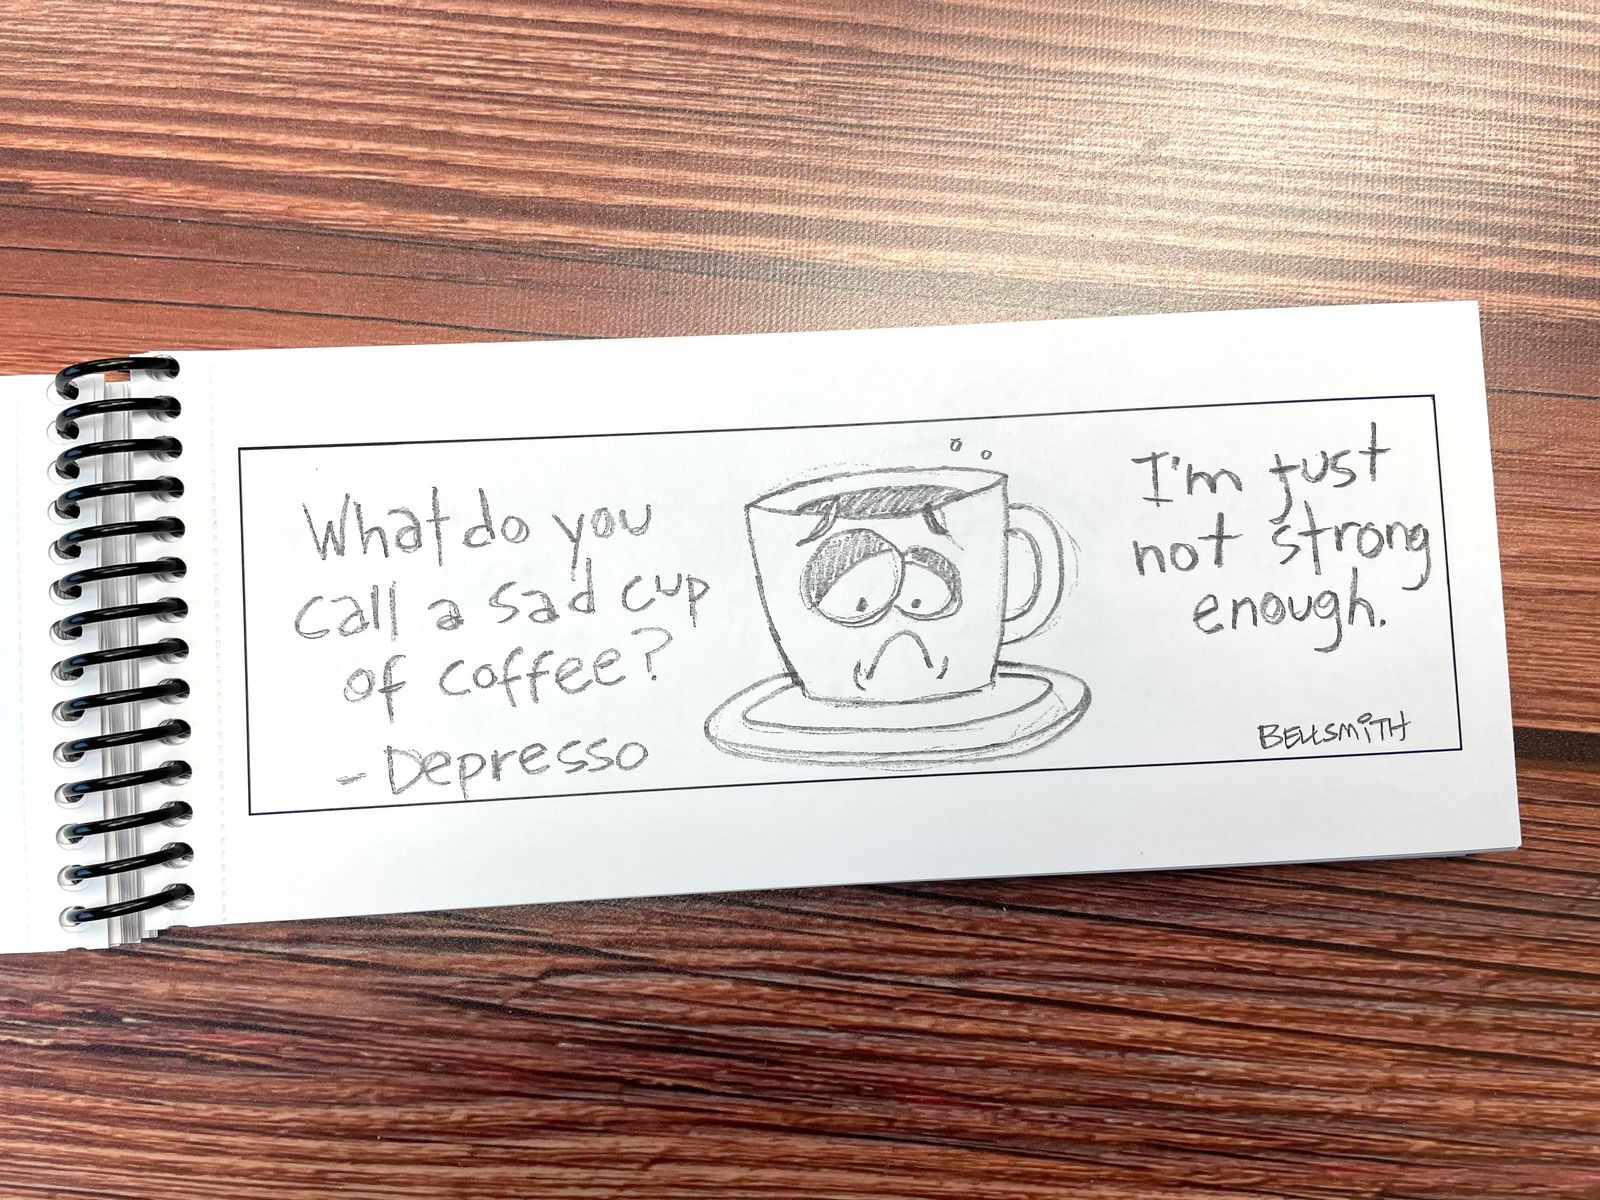 What do you
call a sad cup
of coffee?
- Depresso
I'm just
not strong
enough.
BELLSMITH